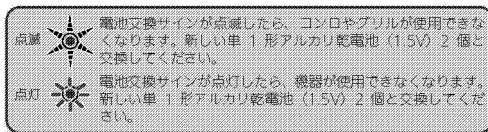 点滅
電池交換サインが点滅したら、コンロやグリルが使用できな
くなります。新しい単 1 形アルカリ乾電池（1.5V）2 個と
交換してください。
点灯
電池交換サインが点灯したら、機器が使用できなくなります。
新しい単 1 形アルカリ乾電池（1.5V）2 個と交換してくだ
さい。